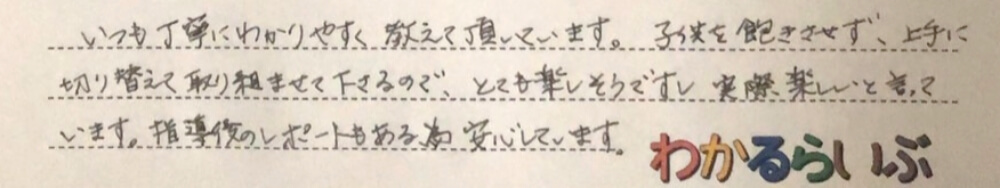 いつも丁寧にわかりやすく教えて頂いています。子供を飽きさせず、上手に
切り替えて取り組ませて下さるので、とても楽しそうですし実際楽しいと言って
います。指導後のレポートもある為安心しています。
わかるらいぶ